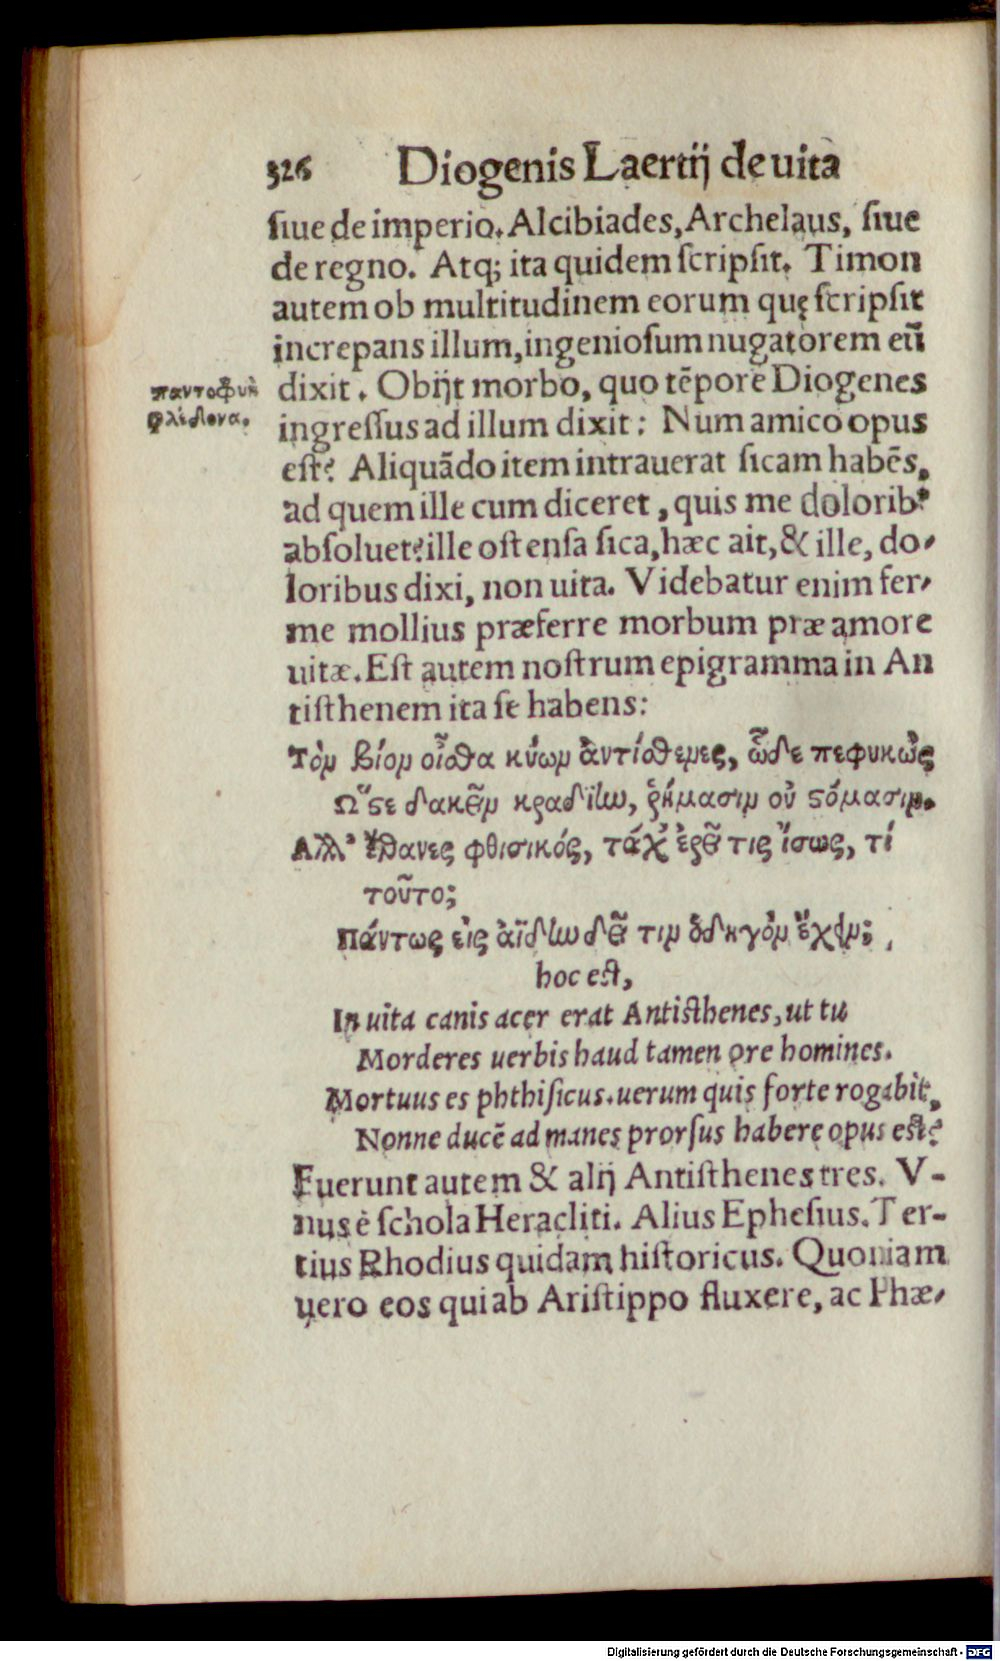 326 Diogenis Laertij de uita
siue de imperio. Alcibiades, Archelaus, siue
de regno. Atq; ita quidem scripsit. Timon
autem ob multitudinem eorum quę scripsit
increpans illum, ingeniosum nugatorem eū
παντοφυῆ
φλέδονα.
dixit. Obijt morbo, quo tēpore Diogenes
ingressus ad illum dixit: Num amico opus
est? Aliquādo item intrauerat sicam habēs,
ad quem ille cum diceret, quis me dolorib⁹
absoluet? ille ostensa sica, hæc ait, & ille, do-
loribus dixi, non uita. Videbatur enim fer-
me mollius præferre morbum præ amore
uitæ. Est autem nostrum epigramma in An
tisthenem ita se habens:
Τὸν βίον οἶσθα κύων ἀντίσθενες, ὧδε πεφυκὼς
Ὥστε δακεῖν κραδίην, ῥήμασιν οὐ στόμασιν.
Ἀλλ' ἔθανες φθισικός, τάχ' ἐρεῖ τις ἴσως, τί
τοῦτο;
Πάντως εἰς ἀΐδην δεῖ τιν' ὁδηγὸν ἔχειν;
hoc est,
In uita canis acer erat Antisthenes, ut tu
Morderes uerbis haud tamen ore homines.
Mortuus es phthisicus. uerum quis forte rogabit,
Nonne ducē ad manes prorsus habere opus est?
Fuerunt autem & alij Antisthenes tres. V-
nus è schola Heracliti. Alius Ephesius. Ter-
tius Rhodius quidam historicus. Quoniam
uero eos qui ab Aristippo fluxere, ac Phæ-
Digitalisierung gefördert durch die Deutsche Forschungsgemeinschaft - DFG